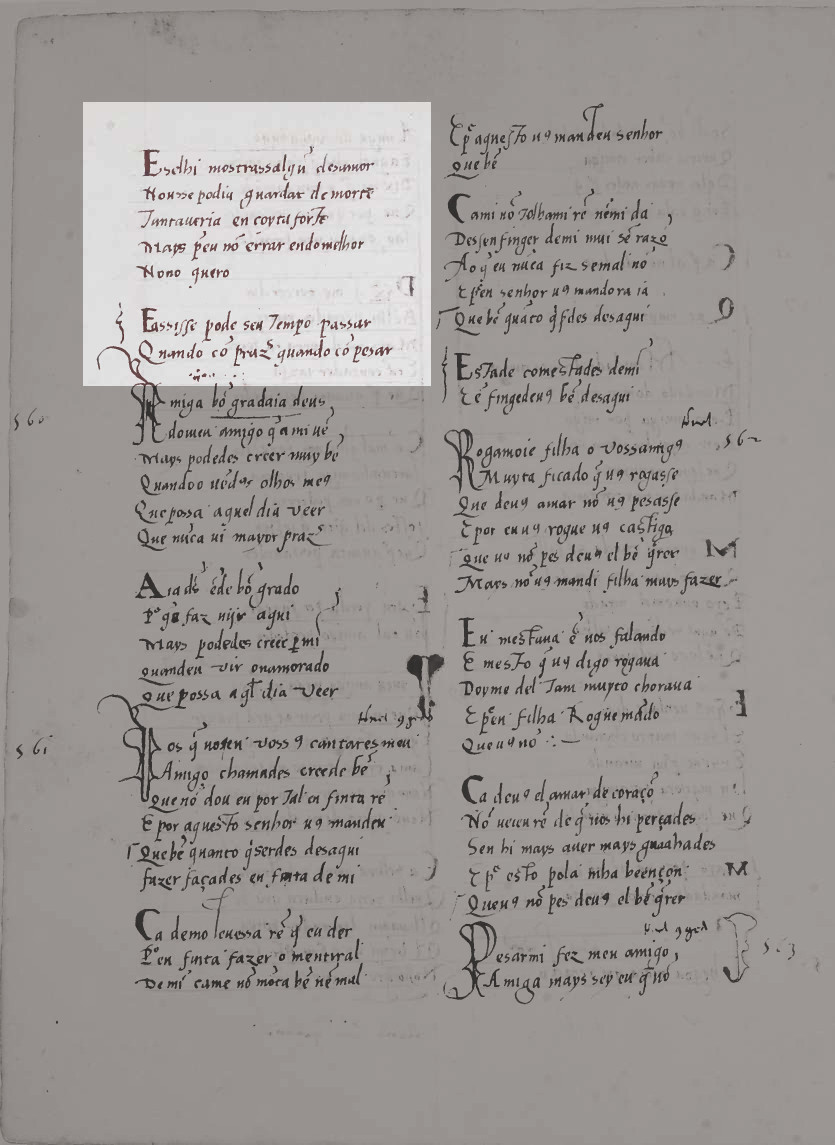 Eselhi mostrassalgũ desamor
Nonsse podia guardar de morte
Tantaueria en coyta forte
Mays p̃eu nõ errar endomelhor
Nono q̃ro
Eassisse pode seu tempo passar
Quando cõ praz̃ quando cõ pesar
560
Amiga bõ gradaia deus
Do meu amigo q̃ a mi uẽ
Mays podedes creer muy bẽ
Quando o uedes olhos me9
Que possa aquel dia veer
Que nũca ui mayor praz̃
Aia ds̃ ẽde bõ grado
P̃o q̃o faz uijr aqui
Mays podedes creer p̃ mi
Quandeu vir o namorado
Que possa aql̃ dia veer
561
Pos q̃ uossen voss9 cantares meu
Amigo chamades creede bẽ
Que nõ dou eu por tal en finta rẽ
E por aquesto senhor u9 mandeu
Que bẽ quanto q̃serdes desaqui
fazer façades en finta de mi
Ca demo leuessa rẽ q̃ eu der
P̃o en finta fazer o mentiral
De mĩ came nõ mõta bẽ nẽ mal
E p̃ aquesto u9 mandeu senhor
Que bẽ
Ca mi nõ tolhami rẽ nẽmi da
Dessenfinger de mi mui sẽ razõ
Ao q̃ eu nũca fiz se mal nõ
E p̃en senhor u9 mandora ia
Que bẽ quãto q̃sdes desaqui
Estade comestades de mi
E ẽfingedeu9 bẽ desaqui
562
Rogamoie filha o vossamig9
Muyta ficado q̃ u9 rogasse
Que deu9 amar nõ u9 pesasse
E por en u9 rogue u9 castigo
Que u9 nõ pes deu9 el bẽ q̃rer
Mays nõ u9 mandi filha mays fazer
Eu mestaua ẽ uos falando
E mesto q̃ u9 digo rogaua
Doyme del tam muyto choraua
E p̃en filha Rogue mãdo
Que u9 nõ
Ca deu9 el amar de coraçõ
Nõ ueueu rẽ de q̃ uos hi perçades
Sen hi mays auer mays guaahades
E p̃ esto pola mha beençon
Que u9 nõ pes deu9 el bẽ q̃rer
563
Pesarmi fez meu amigo
Amiga mays sey eu q̃ nõ